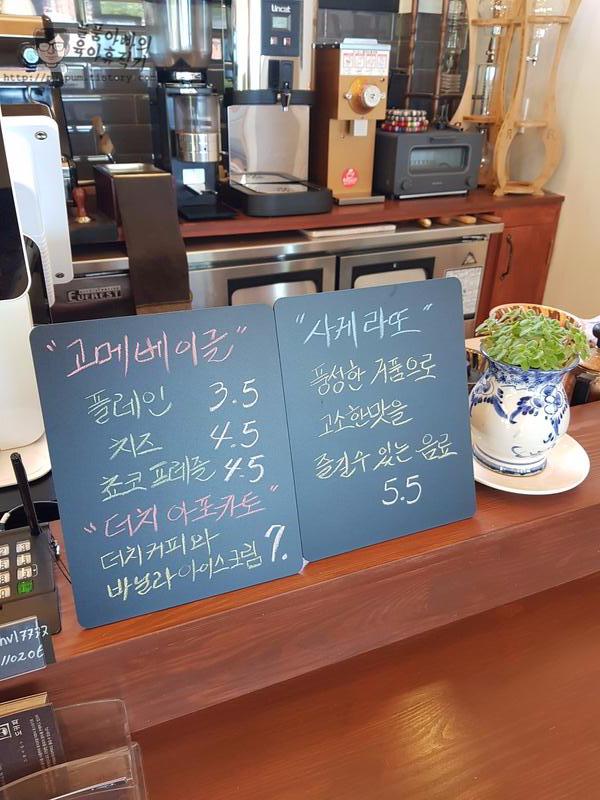 뿜뿜아빠의
육아휴직기
http://ppumppum.tistory.com
Lincat
EVEREST
"고메베이글"
플레인 3.5
치즈 4.5
쵸코프레즐 4.5
"더치아포카토"
더치커피와
바닐라아이스크림 7.
"사케라또"
풍성한 거품으로
고소한맛을
즐길수 있는 음료
5.5